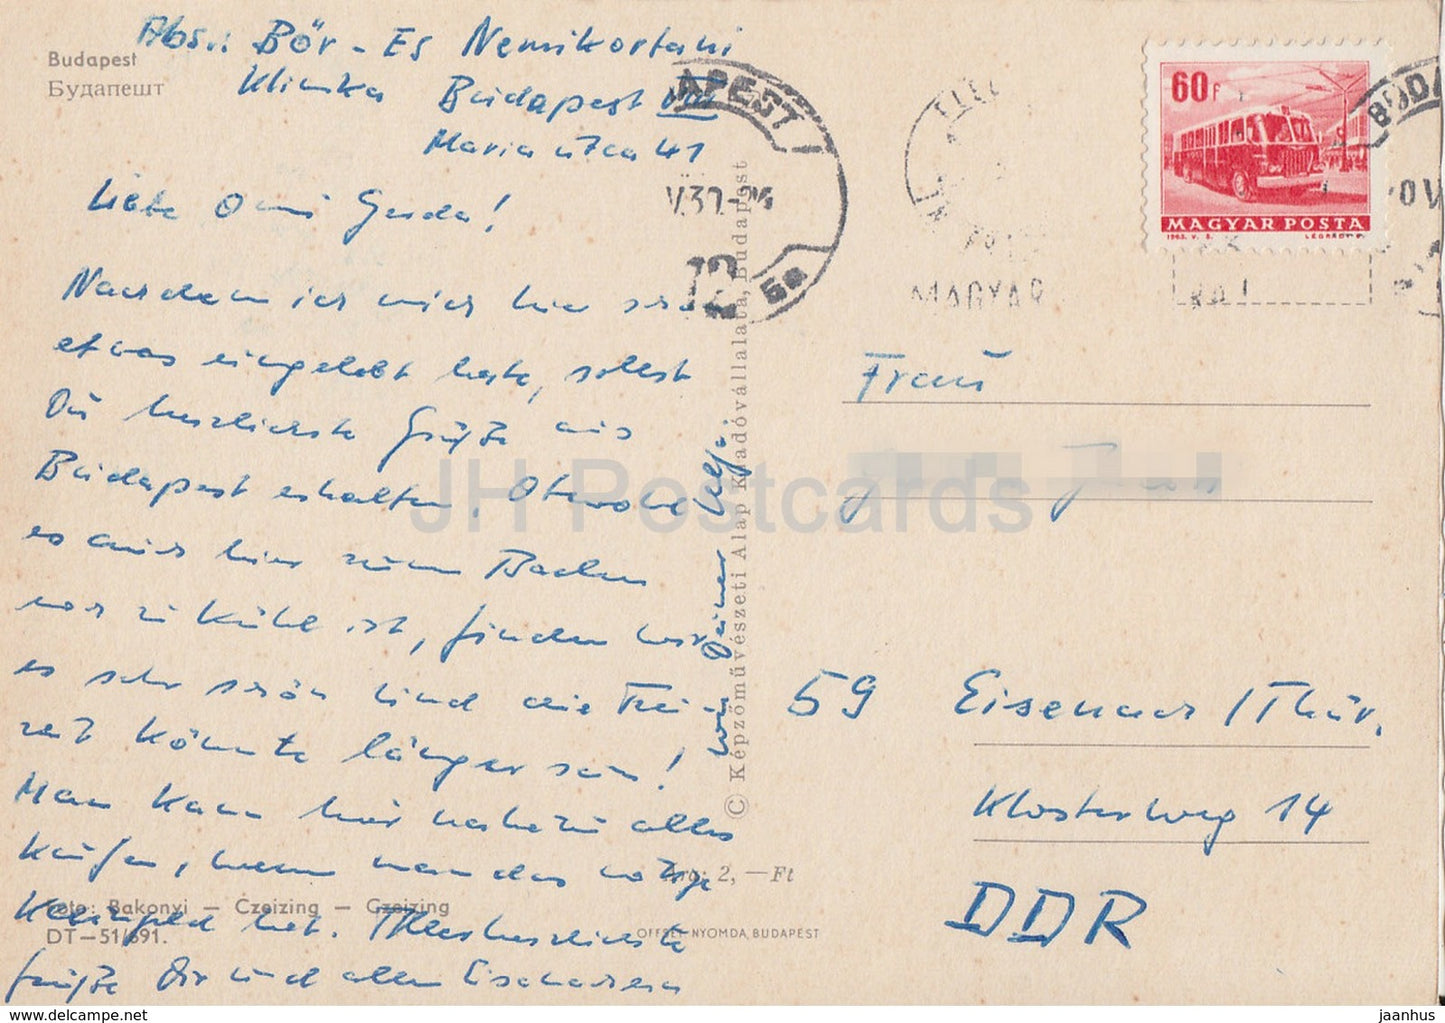 Budapest
Будапешт
Abs.: Bőr - Es Nemikortani
Klinika Budapest VIII
Maria utca 41
Liebe Omi Gerda!
Nachdem ich mich hier schon
etwas eingelebt habe, sollst
Du herzlichste Grüße aus
Budapest erhalten. Obwohl
es auch hier zum Baden
noch zu kühl ist, finden wir
es sehr schön und die Frei-
zeit könnte länger sein!
Man kann hier nahezu alles
kaufen, wenn man das nötige
Kleingeld hat. Allerherzlichste
Grüße Dir und allen Eisenachern
von Deiner
Foto: Bakonyi – Czeizing – Czeizing
DT—51/691.
Ára: 2,—Ft
OFFSET-NYOMDA, BUDAPEST
© Képzőművészeti Alap Kiadóvállalata, Budapest
APEST
12
5a
MAGYAR
60f
MAGYAR POSTA
1963. V. S.
LÉGRÁDY P.
BUDA
Frau
59 Eisenach / Thür.
Klosterweg 14
DDR
JH Postcards
jaanhus—delcampe.net